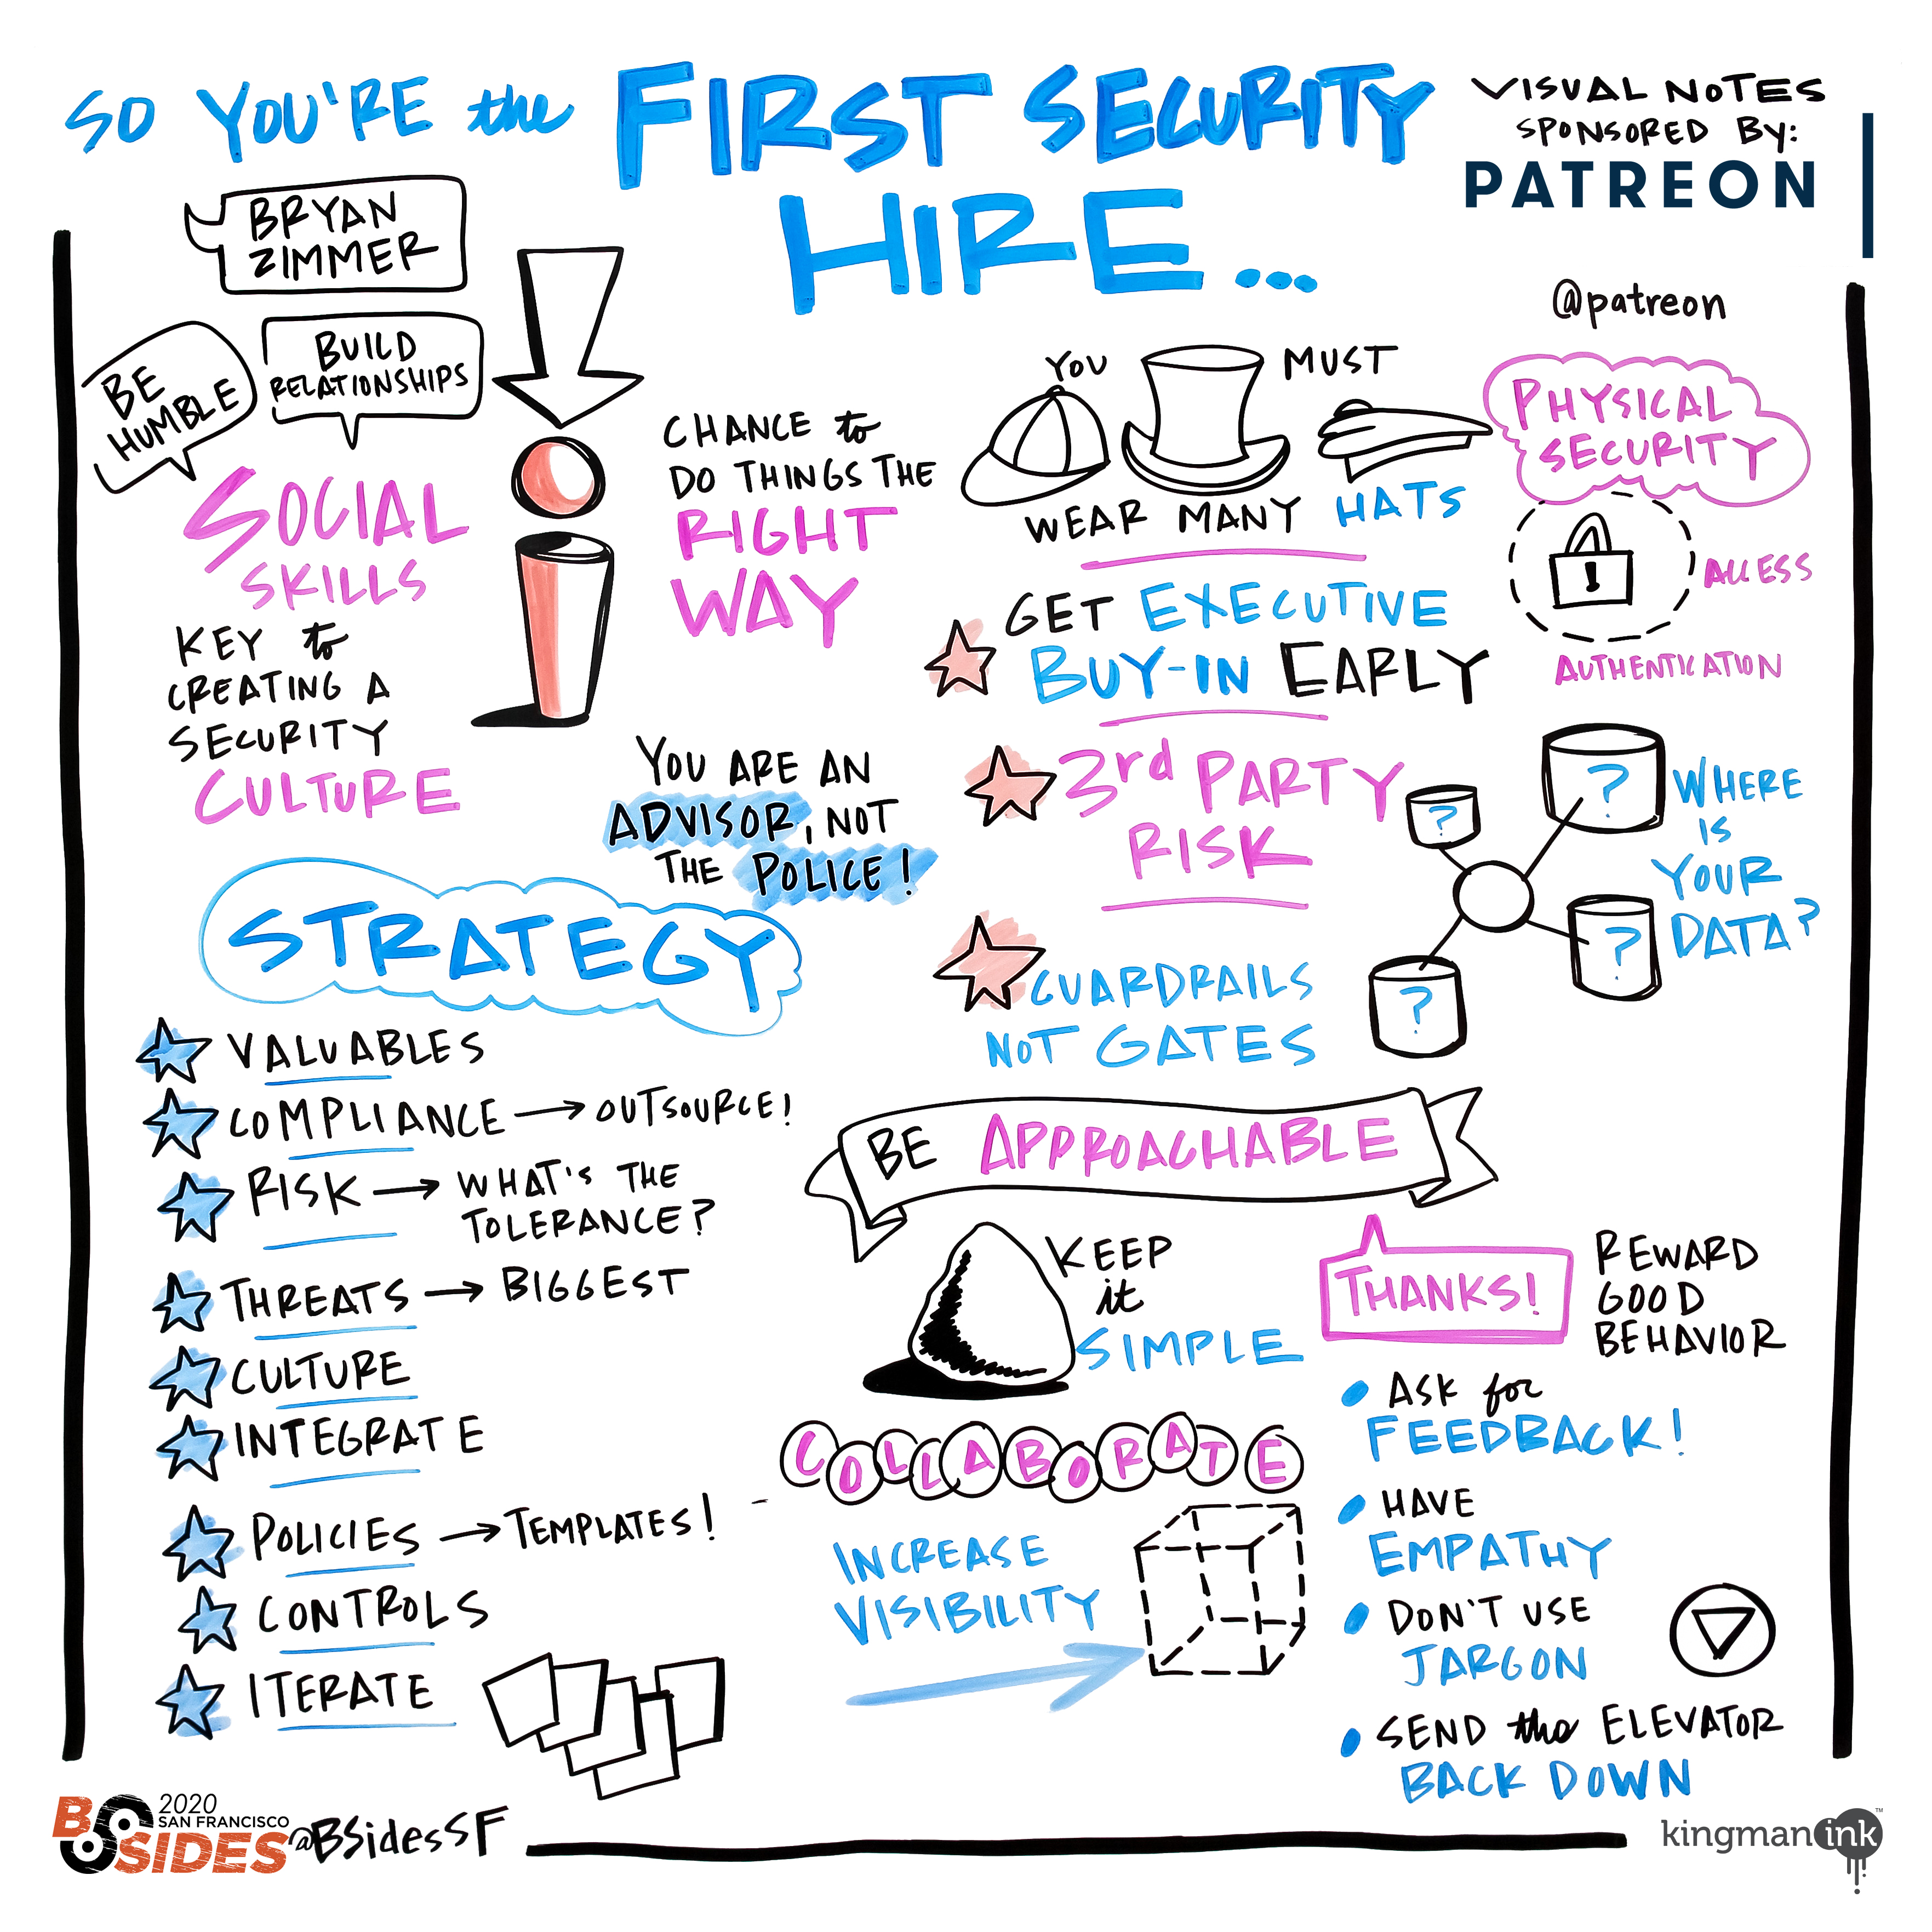 SO YOU'RE the FIRST SECURITY
HIRE...
VISUAL NOTES
SPONSORED BY:
PATREON
@patreon
BRYAN
ZIMMER
BE
HUMBLE
BUILD
RELATIONSHIPS
SOCIAL
SKILLS
KEY to
CREATING A
SECURITY
CULTURE
CHANCE to
DO THINGS THE
RIGHT
WAY
YOU ARE AN
ADVISOR, NOT
THE POLICE!
YOU MUST
WEAR MANY HATS
PHYSICAL
SECURITY
!
ACCESS
AUTHENTICATION
GET EXECUTIVE
BUY-IN EARLY
3rd PARTY
RISK
?
?
?
?
WHERE
IS
YOUR
DATA?
GUARDRAILS
NOT GATES
STRATEGY
VALUABLES
COMPLIANCE → OUTSOURCE!
RISK → WHAT'S THE
TOLERANCE?
THREATS → BIGGEST
CULTURE
INTEGRATE
POLICIES → TEMPLATES!
CONTROLS
ITERATE
BE APPROACHABLE
KEEP
it
SIMPLE
THANKS!
REWARD
GOOD
BEHAVIOR
COLLABORATE
INCREASE
VISIBILITY
• ASK for
FEEDBACK!
• HAVE
EMPATHY
• DON'T USE
JARGON
• SEND the ELEVATOR
BACK DOWN
BSIDES
2020
SAN FRANCISCO
@BSidesSF
kingman ink™